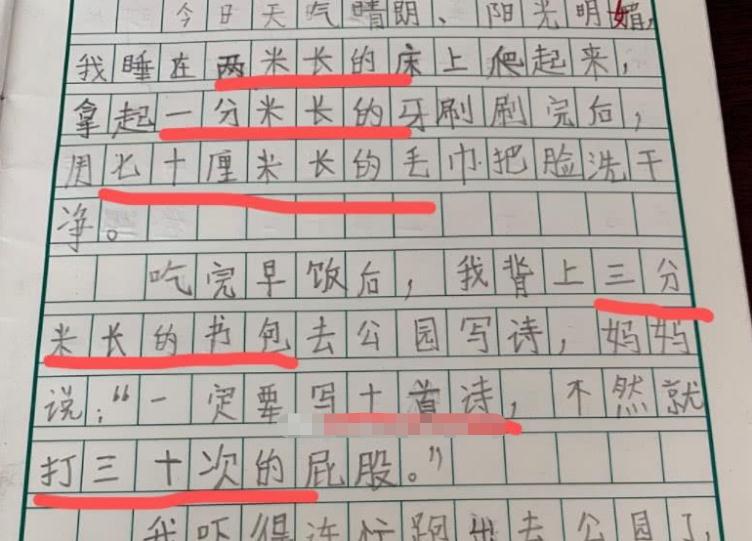 今日天气晴朗、阳光明媚,
我睡在两米长的床上爬起来,
拿起一分米长的牙刷刷完后,
用七十厘米长的毛巾把脸洗干
净。
吃完早饭后,我背上三分
米长的书包去公园写诗,妈妈
说:“一定要写十首诗,不然就
打三十次的屁股。”
我吓得连忙跑出去公园了,